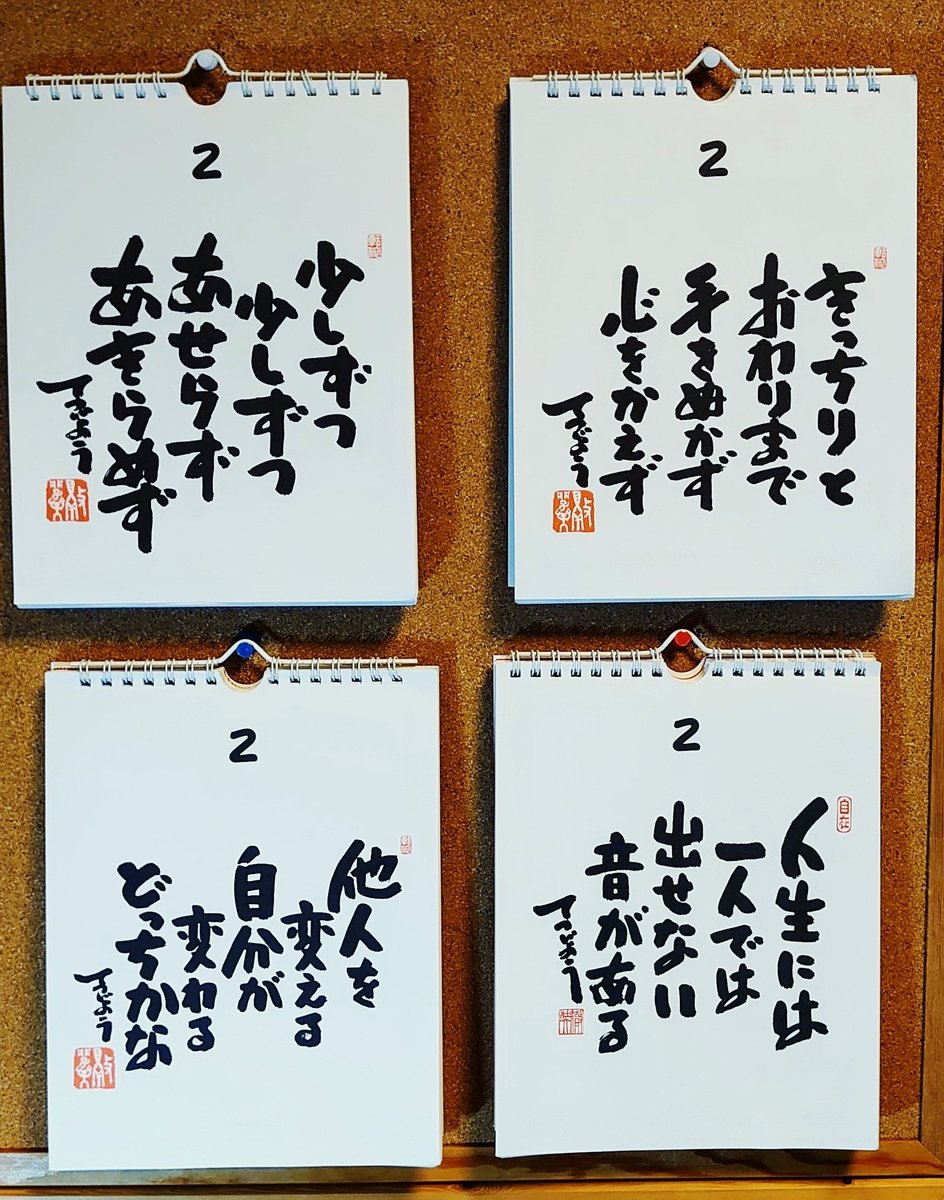 2
少しずつ
少しずつ
あせらず
あきらめず
2
きっちりと
おわりまで
手をぬかず
心をかえず
2
他人を
変える
自分が
変わる
どっちかな
2
自在
人生には
一人では
出せない
音がある